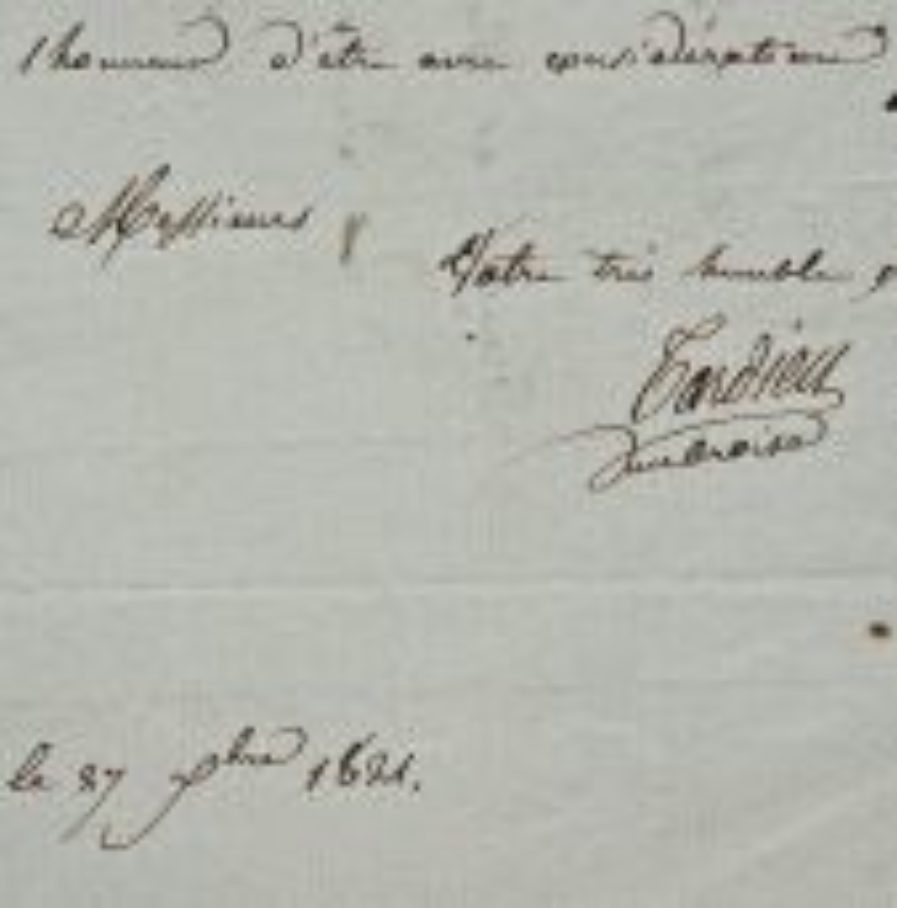 l'honneur d'être avec considération
Messieurs
Votre très humble
Tardieu
Ambroise
le 27 1821.